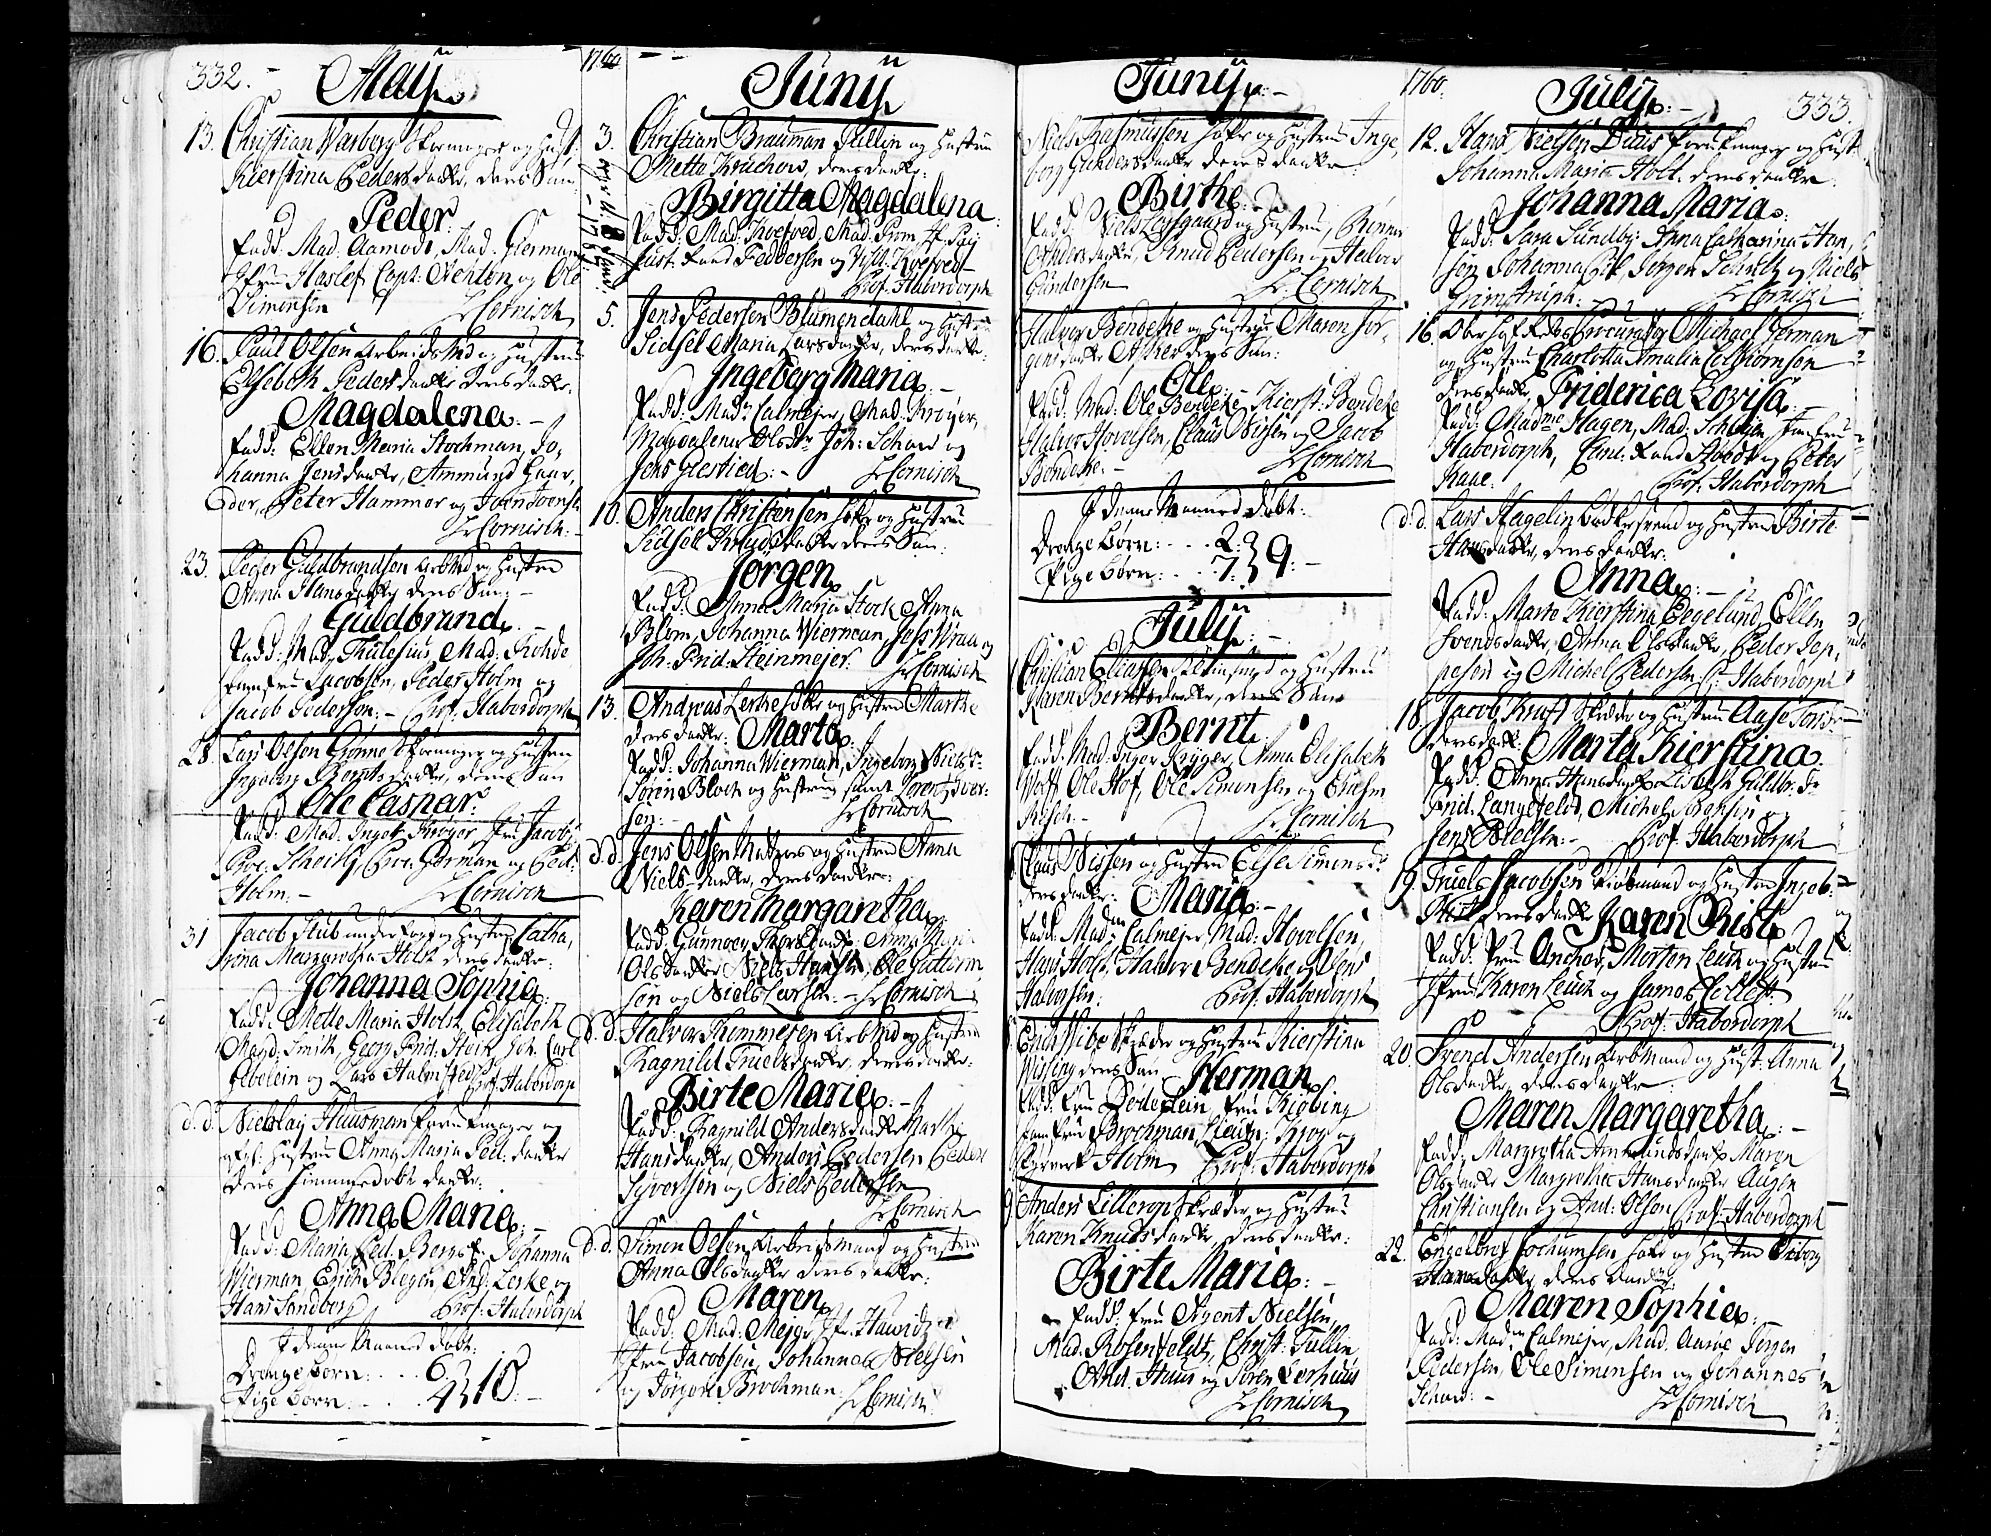 332.
May
13. Christian Warberg Skomager og Hust:
Kierstina Pedersdaatr, deres Søn
Peder.
Fadd: Mad. Aamodt, Mad. German
Jfru Haslef, Capt: Nehton og Ole
Simensen Hr Cornisch
16. Paul Olsen Arbeidsmd og Hustrue
Elsebeth Pedersdaatr deres daatr.
Magdalena.
Fadd: Ellen Maria Stochman, Jo,
hanna Jensdaatr, Ammund Haar,
der, Peter Hammer og
Hr Cornisch.
23. Peder Guldbrandsen Arbmd og Hustrue
Anna Hansdaatr deres Søn:
Guldbrand.
Fadd: Mad. Thulesius, Mad: Rohde
Jomfru Jacobsen, Peder Holm og
Jacob Pedersen. Prof: Haberdorph
28. Lars Olsen Grønne Skomager og Hustrue
Ingeborg Berntsdaatr, deres Søn
Ole Caspar.
Fadd: Mad. Ingeb: Krøger, Jfru Jacobs:
Proc. Scheitz, Proc. German og Ped:
Holm. Hr Cornisch
31 Jacob Stub under Foged og Hustrue Catha,
rina Margaretha Holst deres daatr:
Johanna Sophia.
Fadd: Mette Maria Holst, Elisabeth
Magd: Smith, Georg Frid: Holst, Joh. Carl
Ebelein og Lars Halmsted Prof. Haberdorp
d.d. Nicolay Huusman
Hustrue Anna Maria Ped: daatr
deres hiemmedøbt daatr:
Anna Maria.
Fadd: Maria Ped. Borgs. Johanna
Wierman, Erich Blegen, And: Lerke og
Hans Sandberg Prof: Haberdorph
I denne Maaned døbt:
Drengebørn: 6.
Pigebørn: 4. 10.
1760
Juny
3. Christian Brauman Tullin og Hustrue
Metta Kruchow, deres daatr.
Birgitta Magdalena
Fadd: Mad: Koefoed, Mad. Prom
Feddersen og Will: Koefoed
Prof. Haberdorph
5. Jens Pedersen Blumendahl og Hustrue
Sidsel Maria Larsdaatr, deres daatr.
Ingeberg Maria.
Fadd: Madm Calmejer, Mad. Krøyer,
Magdalena Olsdr Joh: Schaar og
Jens Giestied. Hr Cornisch
10. Anders Christensen Høker og Hustrue
Sidsel Knudsdaatr deres Søn:
Jørgen
Fadd: Anne Maria Stock Anna
Blom, Johanna Wierman, Jess Wraa og
Joh: Frid: Steinmejer. Hr Cornisch
13. Andreas Lerke og Hustrue Marthe
deres daatr: Marta.
Fadd: Johanna Wierman, Ingeborg Nielsdr
Søren Bloch og Hustrue samt Lorentz Iver-
sen. Hr Cornisch
d.d. Jens Olsen Matros og Hustrue Anna
Nielsdaatr, deres daatr:
Karen Margaretha
Fadd: Gunnoer Thorsdaatr: Anne Maria
Olsdaatr Niels Hansen, Ole Guttorm
sen og Niels Larsen. Hr Cornisch
d.d. Halvor Kimmesen Arbmd og Hustrue
Ragnild Truelsdaatr, deres daatr.
Birte Maria.
Fadd: Ragnild Andersdaatr Marthe
Hansdaatr, Anders Pedersen Peder
Syvertsen og Niels Pedersen
Hr Cornisch
d.d. Simen Olsen Arbeidsmand og Hustrue
Anna Olsdaatr deres daatr:
Maren
Fadd: Mad: Mejer, Jfr. Hawidz
Jfru Jacobsen, Johannes Nielsen
og Jørgen Brochman: Hr Cornisch
Juny
Niels Rasmussen Høker og Hustrue Inge,
borg Gundersdaatr deres daatr
Birthe.
Fadd: Niels Løfgaard og Hustrue, Rønnov
Andersdaatr, Knud Pedersen og Halvor
Gundersen Hr. Cornisch
Halvor Bendeke og Hustrue Maren Jør-
gensdaatr Asker deres Søn:
Ole.
Fadd: Mad: Ole Bendeke, Kierst: Bendeke
Halvor Hovelsen, Claus Nissen og Jacob
Bendeke. Hr Cornisch
I denne Maaned døbt:
Drengebørn: 2.
Pigebørn: 7. 9.
July
Christian Eliasen og Hustrue
Karen Berntsdaatr, deres Søn
Bernt.
Fadd: Mad. Inger Krøger, Anna Elisabeth
Wolff Ole Hof, Ole Simensen og Erasm
Resch. Hr Cornisch
Claus Nissen og Hustrue Else Simensdr
deres daatr. Maria.
Fadd: Madm Calmejer, Mad: Hovelsen,
Hans Holst, Halvor Bendeke og Jens
Halvorsen: Prof. Haberdorph
Erich Wibe Skræder og Hustrue Kierstina
Wissing deres Søn Herman
Fadd: Fru Døderlein, Fru Kiøbing
Jomfru Brochman, Lieutn: Krog og
Sivert Holm Prof: Haberdorph
9 Anders Lillerop Skræder og Hustrue
Karen Knudsdaatr, deres daatr.
Birte Maria.
Fadd: Fru Agent Nielsen,
Mad. Rosenfeldt, Christ: Tullin
And. Huus og Søren Lerhuus
Hr Cornisch
1760.
July 333.
12. Hans Nielsen Duus og Hust
Johanna Maria Holt. deres daatr.
Johanna Maria.
Fadd: Sara Sundby, Anna Catharina Han,
sen Johanna Eek, Jørgen Schultz og Niels
Grimstruph. Hr Cornisch
16. Oberhofretts Procurator Michael German
og Hustrue Charlotta Amalia Colbiørnsen
deres daatr, Friderica Lovisa.
Fadd: Madme Hagen, Mad. Scheen Jomfru
Haberdorph, Cand: Rand Stvedt og Peter
Kaae. Prof: Haberdorph
d.d. Lars Hagelin Bødkersvend og Hustrue Birte
Hansdaatr, deres daatr.
Anna.
Fadd: Marte Kierstina Egelund, Ellen
Svendsdaatr, Anna Olsdaatr, Peder Jep,
pesen og Michel Pedersen P: Haberdorph
18. Jacob Kraft Skræder og Hustrue Aase
deres daatr. Marta Kierstina.
Fadd: Anne Hansdaatr Lisbeth Guldbr: dr
Frid. Langefeld, Michel
Jens Nielsen. Prof. Haberdorph
19. Truels Jacobsen Kiøbmand og Hustrue Ingeb:
Rist deres daatr Karen Rist.
Fadd: Fru Ancher, Morten Leuch og Hustrue
Jfru Karen Leuch og James Collett.
Prof. Haberdorph
20. Svend Andersen Arbmand og Hust: Anna
Olsdaatr deres daatr.
Maren Margaretha.
Fadd: Margretha Amundsdaatr Maren
Olsdaatr Margrethe Hansdaatr Augen
Christiansen og And: Olsen Prof: Haberdorph
22. Engelbret Jochumsen Høker og Hustrue Siborg
Hansdaatr, deres daatr.
Maren Sophia.
Fadd: Madm Calmejer, Mad. Aarøe Jørgen
Pedersen, Ole Simensen og Johannes
Schaar: Hr Cornisch